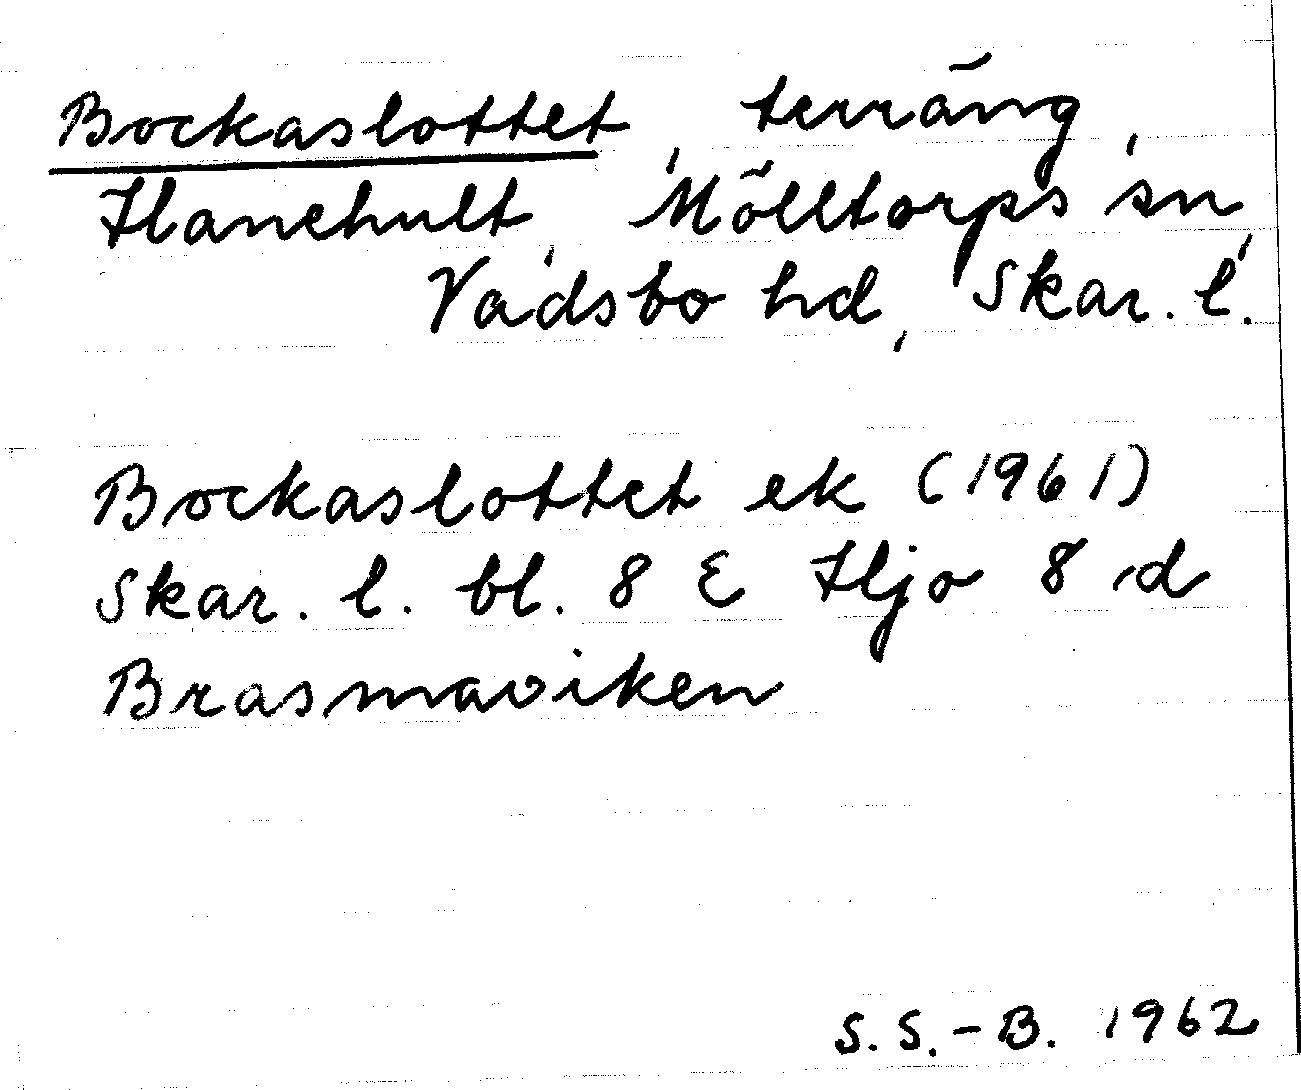 Bockaslottet, terräng,
Hanehult, Mölltorps sn,
Vadsbo hd, Skar. l.
Bockaslottet ek (1961)
Skar. l. bl. 8 E Hjo 8 d
Brasmaviken
S. S.-B. 1962